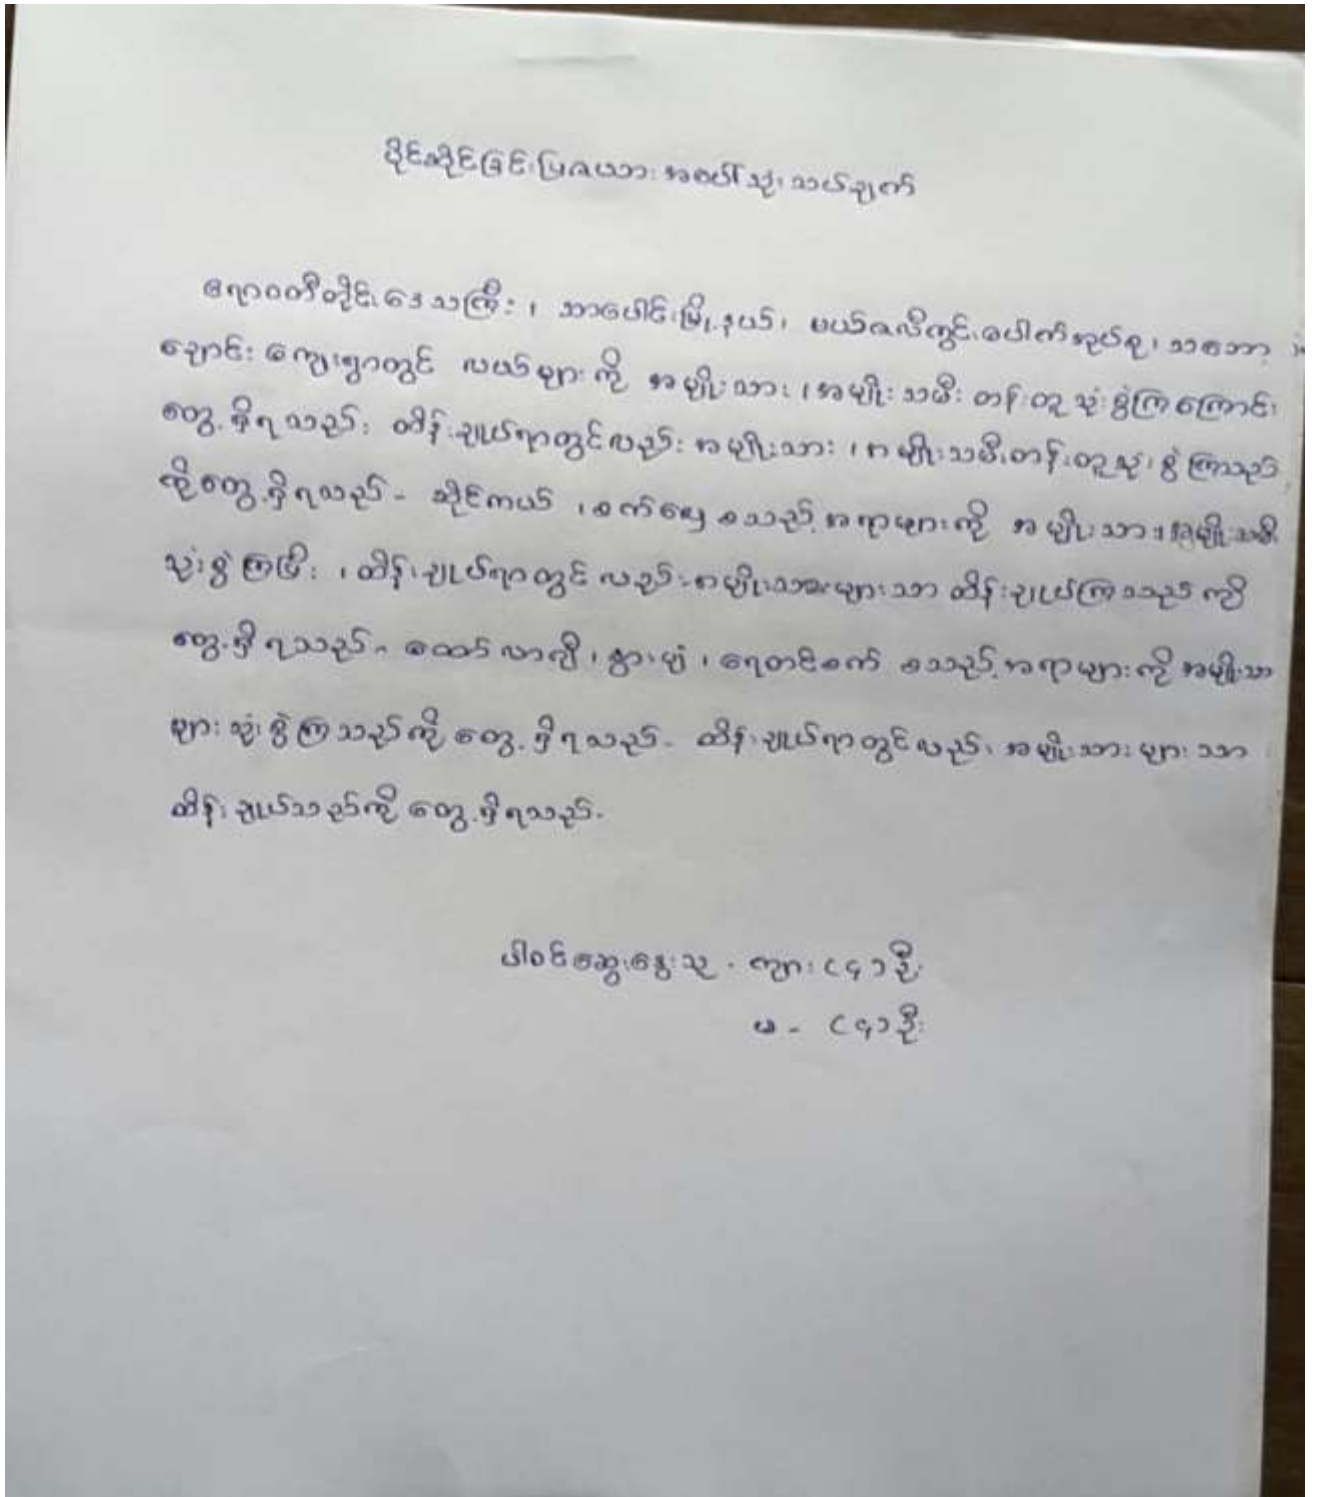 ပိုင်ဆိုင်ခြင်းပြဇယားအပေါ်သုံးသပ်ချက်
ဧရာဝတီတိုင်းဒေသကြီး၊ သာပေါင်းမြို့နယ်၊ မယ်ဇလီကွင်းပေါက်အုပ်စု၊ သဘော့
ချောင်းကျေးရွာတွင် လယ်များကို အမျိုးသား၊ အမျိုးသမီး တန်းတူသုံးစွဲကြကြောင်း
တွေ့ရှိရသည်။ ထိန်းချုပ်ရာတွင်လည်း အမျိုးသား၊ အမျိုးသမီးတန်းတူသုံးစွဲကြသည်
ကိုတွေ့ရှိရသည်- ဆိုင်ကယ်၊ စက်လှေ စသည့်အရာများကို အမျိုးသား၊ အမျိုးသမီး
သုံးစွဲကြပြီး၊ ထိန်းချုပ်ရာတွင်လည်းအမျိုးသားများသာ ထိန်းချုပ်ကြသည်ကို
တွေ့ရှိရသည်- ထော်လာဂျီ၊ နွား၊ ရေတင်စက် စသည့်အရာများကို အမျိုးသား
များသုံးစွဲကြသည်ကို တွေ့ရှိရသည်- ထိန်းချုပ်ရာတွင်လည်း အမျိုးသားများသာ
ထိန်းချုပ်သည်ကို တွေ့ရှိရသည်-
ပါဝင်ဆွေးနွေးသူ - ကျား (၄)ဦး
မ - (၄)ဦး